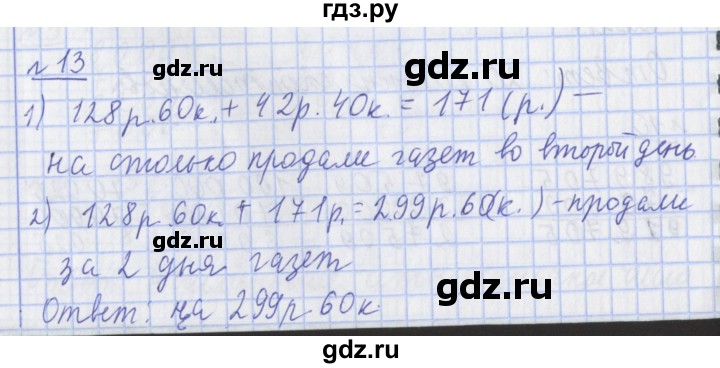 гдз.ру
№ 13
gdz.ru
gdz.ru
1) 128 р. 60 к. + 42 р. 40 к. = 171 (р.) —
на столько продали газет во второй день
2) 128 р. 60 к + 171 р. = 299 р. 60 (к.) - продали
gdz.ru
за 2 дня газет
gdz.ru
Ответ: на 299 р 60 к.
gdz.ru